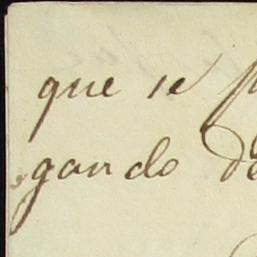 que se
gando de